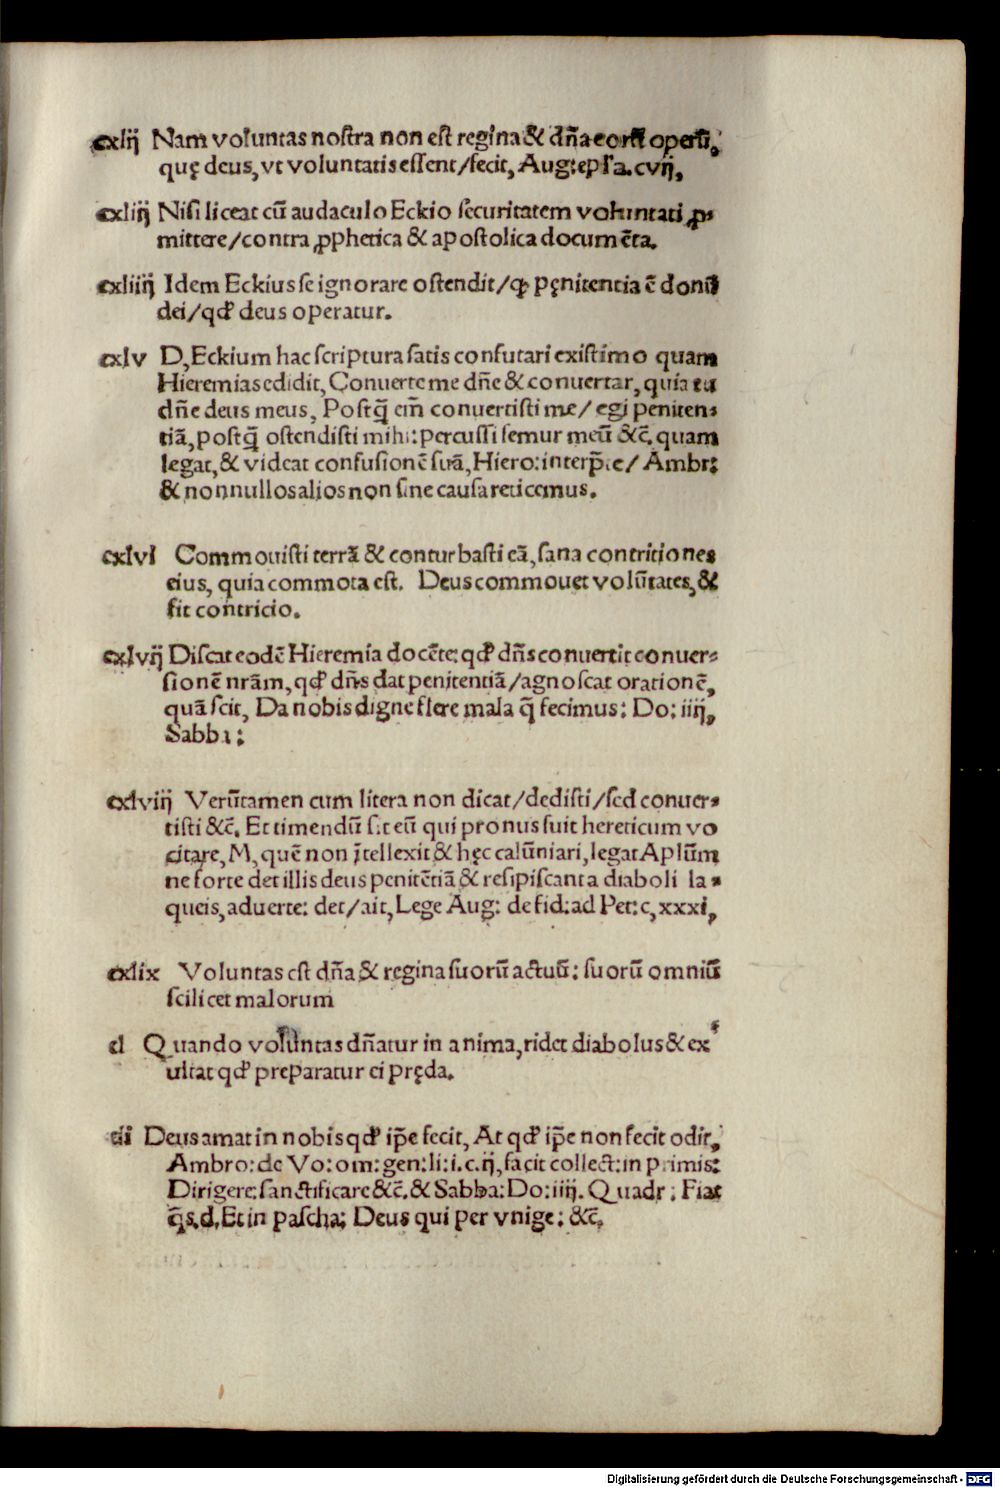 cxliij Nam voluntas nostra non est regina & dña eorũ operũ,
quę deus, vt voluntatis essent/fecit, Aug: epl'a. cvij,
cxliij Nisi liceat cũ audaculo Eckio securitatem voluntati ꝓ⸗
mittere/contra ꝓphetica & apostolica documẽta.
cxliiij Idem Eckius se ignorare ostendit/qꝫ pęnitentia ẽ donũ
dei/qđ deus operatur.
cxlv D, Eckium hac scriptura satis confutari existimo quam
Hieremias edidit, Conuerte me dñe & conuertar, quia tu
dñe deus meus, Postq̃ em̃ conuertisti me/ egi peniten⸗
tiã, postq̃ ostendisti mihi: percussi femur meũ &c̃. quam
legat, & videat confusionẽ suã, Hiero: interp̃te/ Ambr:
& nonnullos alios non sine causa reticemus.
cxlvi Commouisti terrã & conturbasti eã, sana contritiones
eius, quia commota est. Deus commouet volũtates, &
fit contricio.
cxlvij Discat eodẽ Hieremia docẽte: qđ dñs conuertit conuer⸗
sionẽ nrãm, qđ dñs dat penitentiã/agnoscat orationẽ,
quã scit, Da nobis digne flere mala q̃ fecimus: Do: iiij,
Sabba:
cxlviij Verũtamen cum litera non dicat/dedisti/sed conuer⸗
tisti &c̃. Et timendũ sit eũ qui pronus fuit hereticum vo
citare, M, quẽ non ĩtellexit & hęc calũniari, legat Aplũm
ne forte det illis deus penitẽtiã & resipiscant a diaboli la⸗
queis, aduerte: det/ait, Lege Aug: de fid: ad Pet: c, xxxi,
cxlix Voluntas est dña & regina suorũ actuũ: suorũ omniũ
scilicet malorum
cl Quando voluntas dñatur in anima, ridet diabolus & ex⸗
ultat qđ preparatur ei pręda.
cli Deus amat in nobis qđ ip̃e fecit, At qđ ip̃e non fecit odit,
Ambro: de Vo: om: gen: li: i. c. ij, facit collect: in primis:
Dirigere: sanctificare &c̃. & Sabba: Do: iiij. Quadr: Fiat
q̃s. d, Et in pascha; Deus qui per vnige: &c̃.
Digitalisierung gefördert durch die Deutsche Forschungsgemeinschaft - DFG